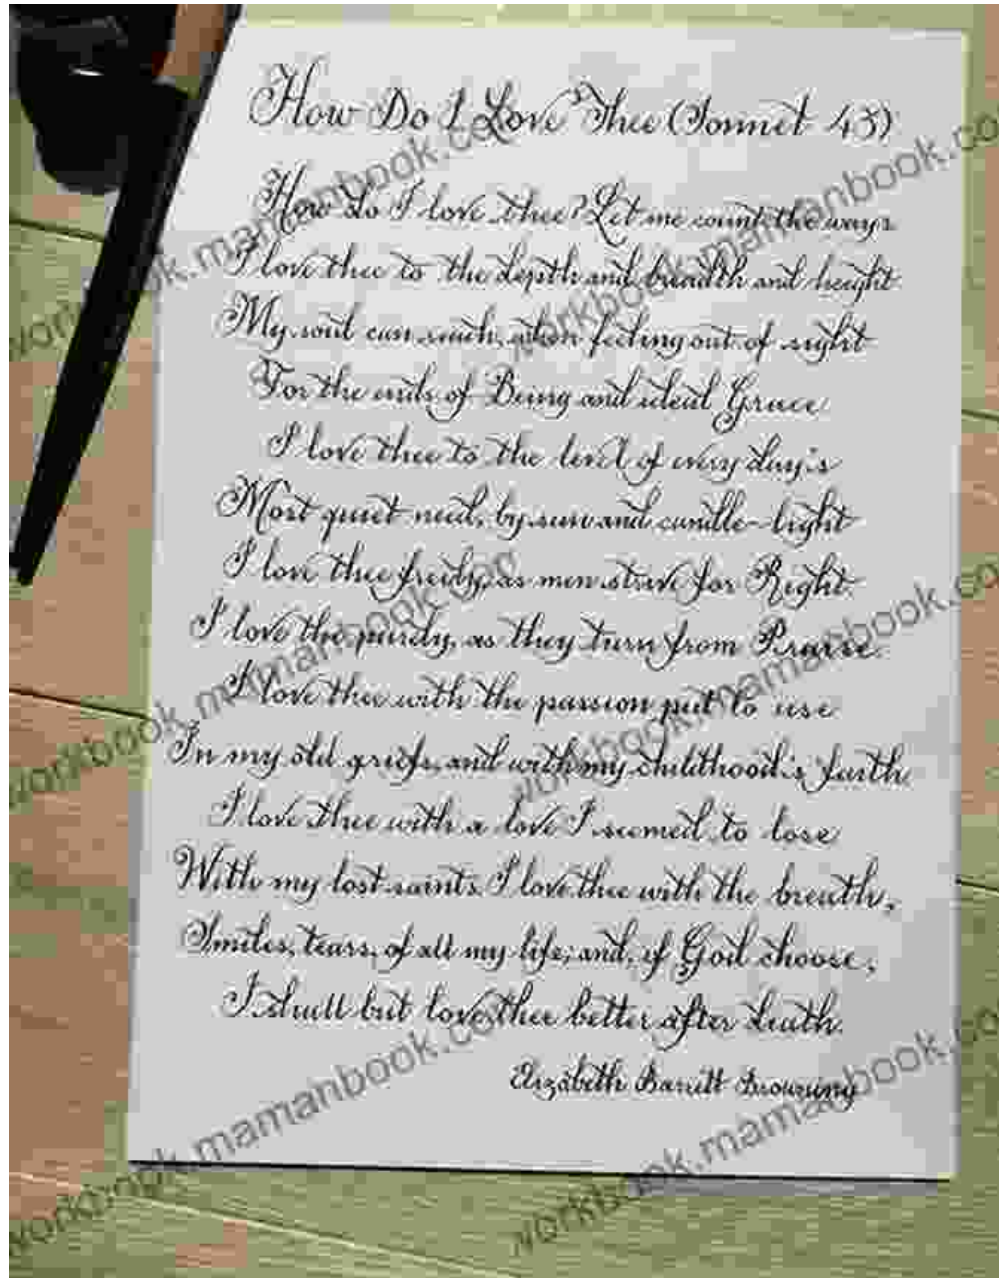 How Do I Love Thee (Sonnet 43)
How do I love thee? Let me count the ways
I love thee to the depth and breadth and height
My soul can reach, when feeling out of sight
For the ends of Being and ideal Grace
I love thee to the level of every day's
Most quiet need, by sun and candle-light
I love thee freely, as men strive for Right.
I love thee purely, as they turn from Praise.
I love thee with the passion put to use
In my old griefs, and with my childhood's faith.
I love thee with a love I seemed to lose
With my lost saints. I love thee with the breath,
Smiles, tears, of all my life; and, if God choose,
I shall but love thee better after death.
Elizabeth Barrett Browning
workbook.mamanbook.com